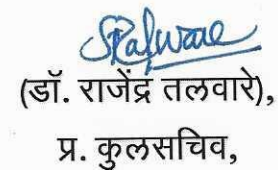 (डॉ. राजेंद्र तलवारे),
प्र. कुलसचिव,